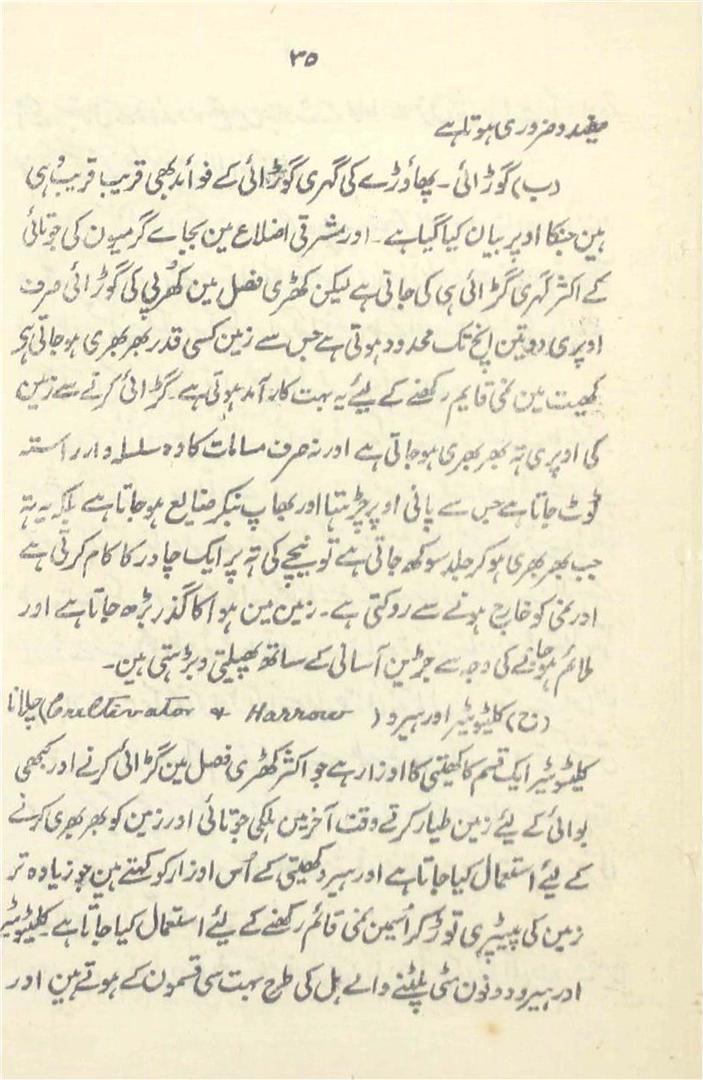 ۳۵
مفید و ضروری ہوتا ہے
(ب) گوڑائی۔ پھاؤڑے کی گہری گوڑائی کے فوائد بھی قریب قریب وُہی
ہین جنکا اوپر بیان کیا گیا ہے۔ اور مشرقی اضلاع مین بجاے گرمیون کی جوتائی
کے اکثر گہری گڑائی ہی کی جاتی ہے لیکن کھڑی فصل مین کھُرپی کی گوڑائی صرف
اوپری دو تین اِنچ تک محدود ہوتی ہے جس سے زمین کسی قدر بھربھری ہو جاتی ہی
کھیت مین نمی قایم رکھنے کے لیٔے یہ بہت کارآمد ہوتی ہے۔ گڑائی کرنے سے زمین
کی اوپری تہ بھربھری ہو جاتی ہے اور نہ صرف مسامات کا وہ سلسلہ وار راستہ
ٹوٹ جاتا ہے جس سے پانی اوپر چڑہتا اور بھاپ بنکر ضایع ہو جاتا ہے بلکہ یہ تہ
جب بھربھری ہو کر جلد سوکھ جاتی ہے تو نیچے کی تہ پر ایک چادر کا کام کرتی ہے
اور نمی کو خارج ہونے سے روکتی ہے۔ زمین مین ہوا کا گذر بڑھ جاتا ہے اور
ملائم ہو جانے کی وجہ سے جڑین آسانی کے ساتھ پھیلتی و بڑہتی ہین۔
(ج) کلٹیویٹر اور ہیرو (Cultivator & Harrow) چلانا
کلٹیویٹر ایک قسم کا کھیتی کا اوزار ہے جو اکثر کھڑی فصل مین گڑائی کرنے اور کبھی
بوائی کے لیٔے زمین طیار کرتے وقت آخر مین ہلکی جوتائی اور زمین کو بھربھری کرنے
کے لیٔے استعمال کیا جاتا ہے اور ہیرو کھیتی کے اُس اوزار کو کہتے ہین جو زیادہ تر
زمین کی پپڑی توڑ کر اُسمین نمی قائم رکھنے کے لیٔے استعمال کیا جاتا ہے۔ کلٹیویٹر
اور ہیرو دونون مٹی پلٹنے والے ہل کی طرح بہت سی قسمون کے ہوتے ہین اور